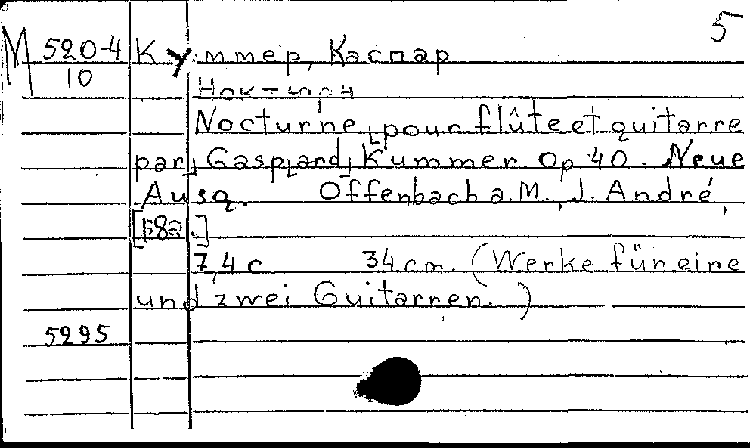 5
М 520-4 Куммер, Каспар
10
Ноктюрн
Nocturne pour flûte et guitarre
par Gasp[ard] Kummer Op 40. Neue
Ausg. Offenbach a. M., J. André,
7,4 c 34 cm. (Werke für eine
und zwei Guitarren.)
5295